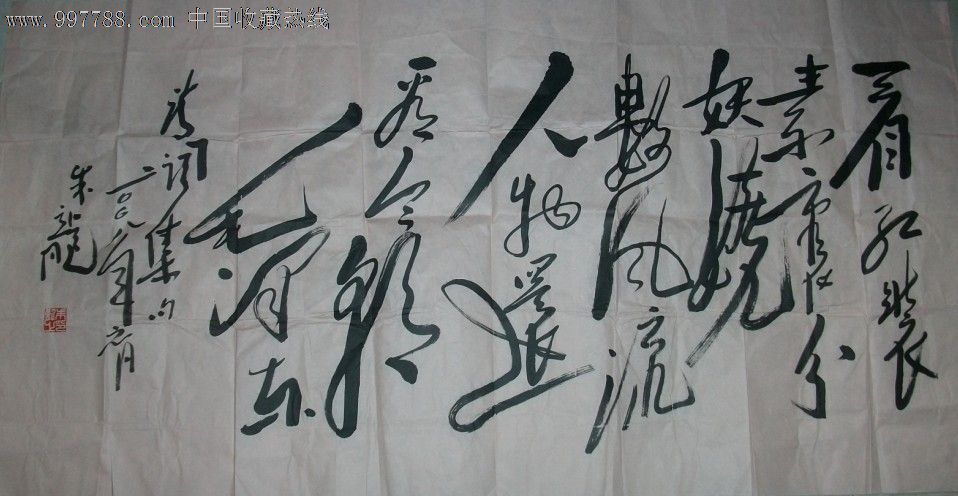 www.997788.com 中国收藏热线
看红装
素裹分
妖娆
數风流
人物還
看今朝
毛泽东
诗词集句
二〇〇九年六月
朱龍